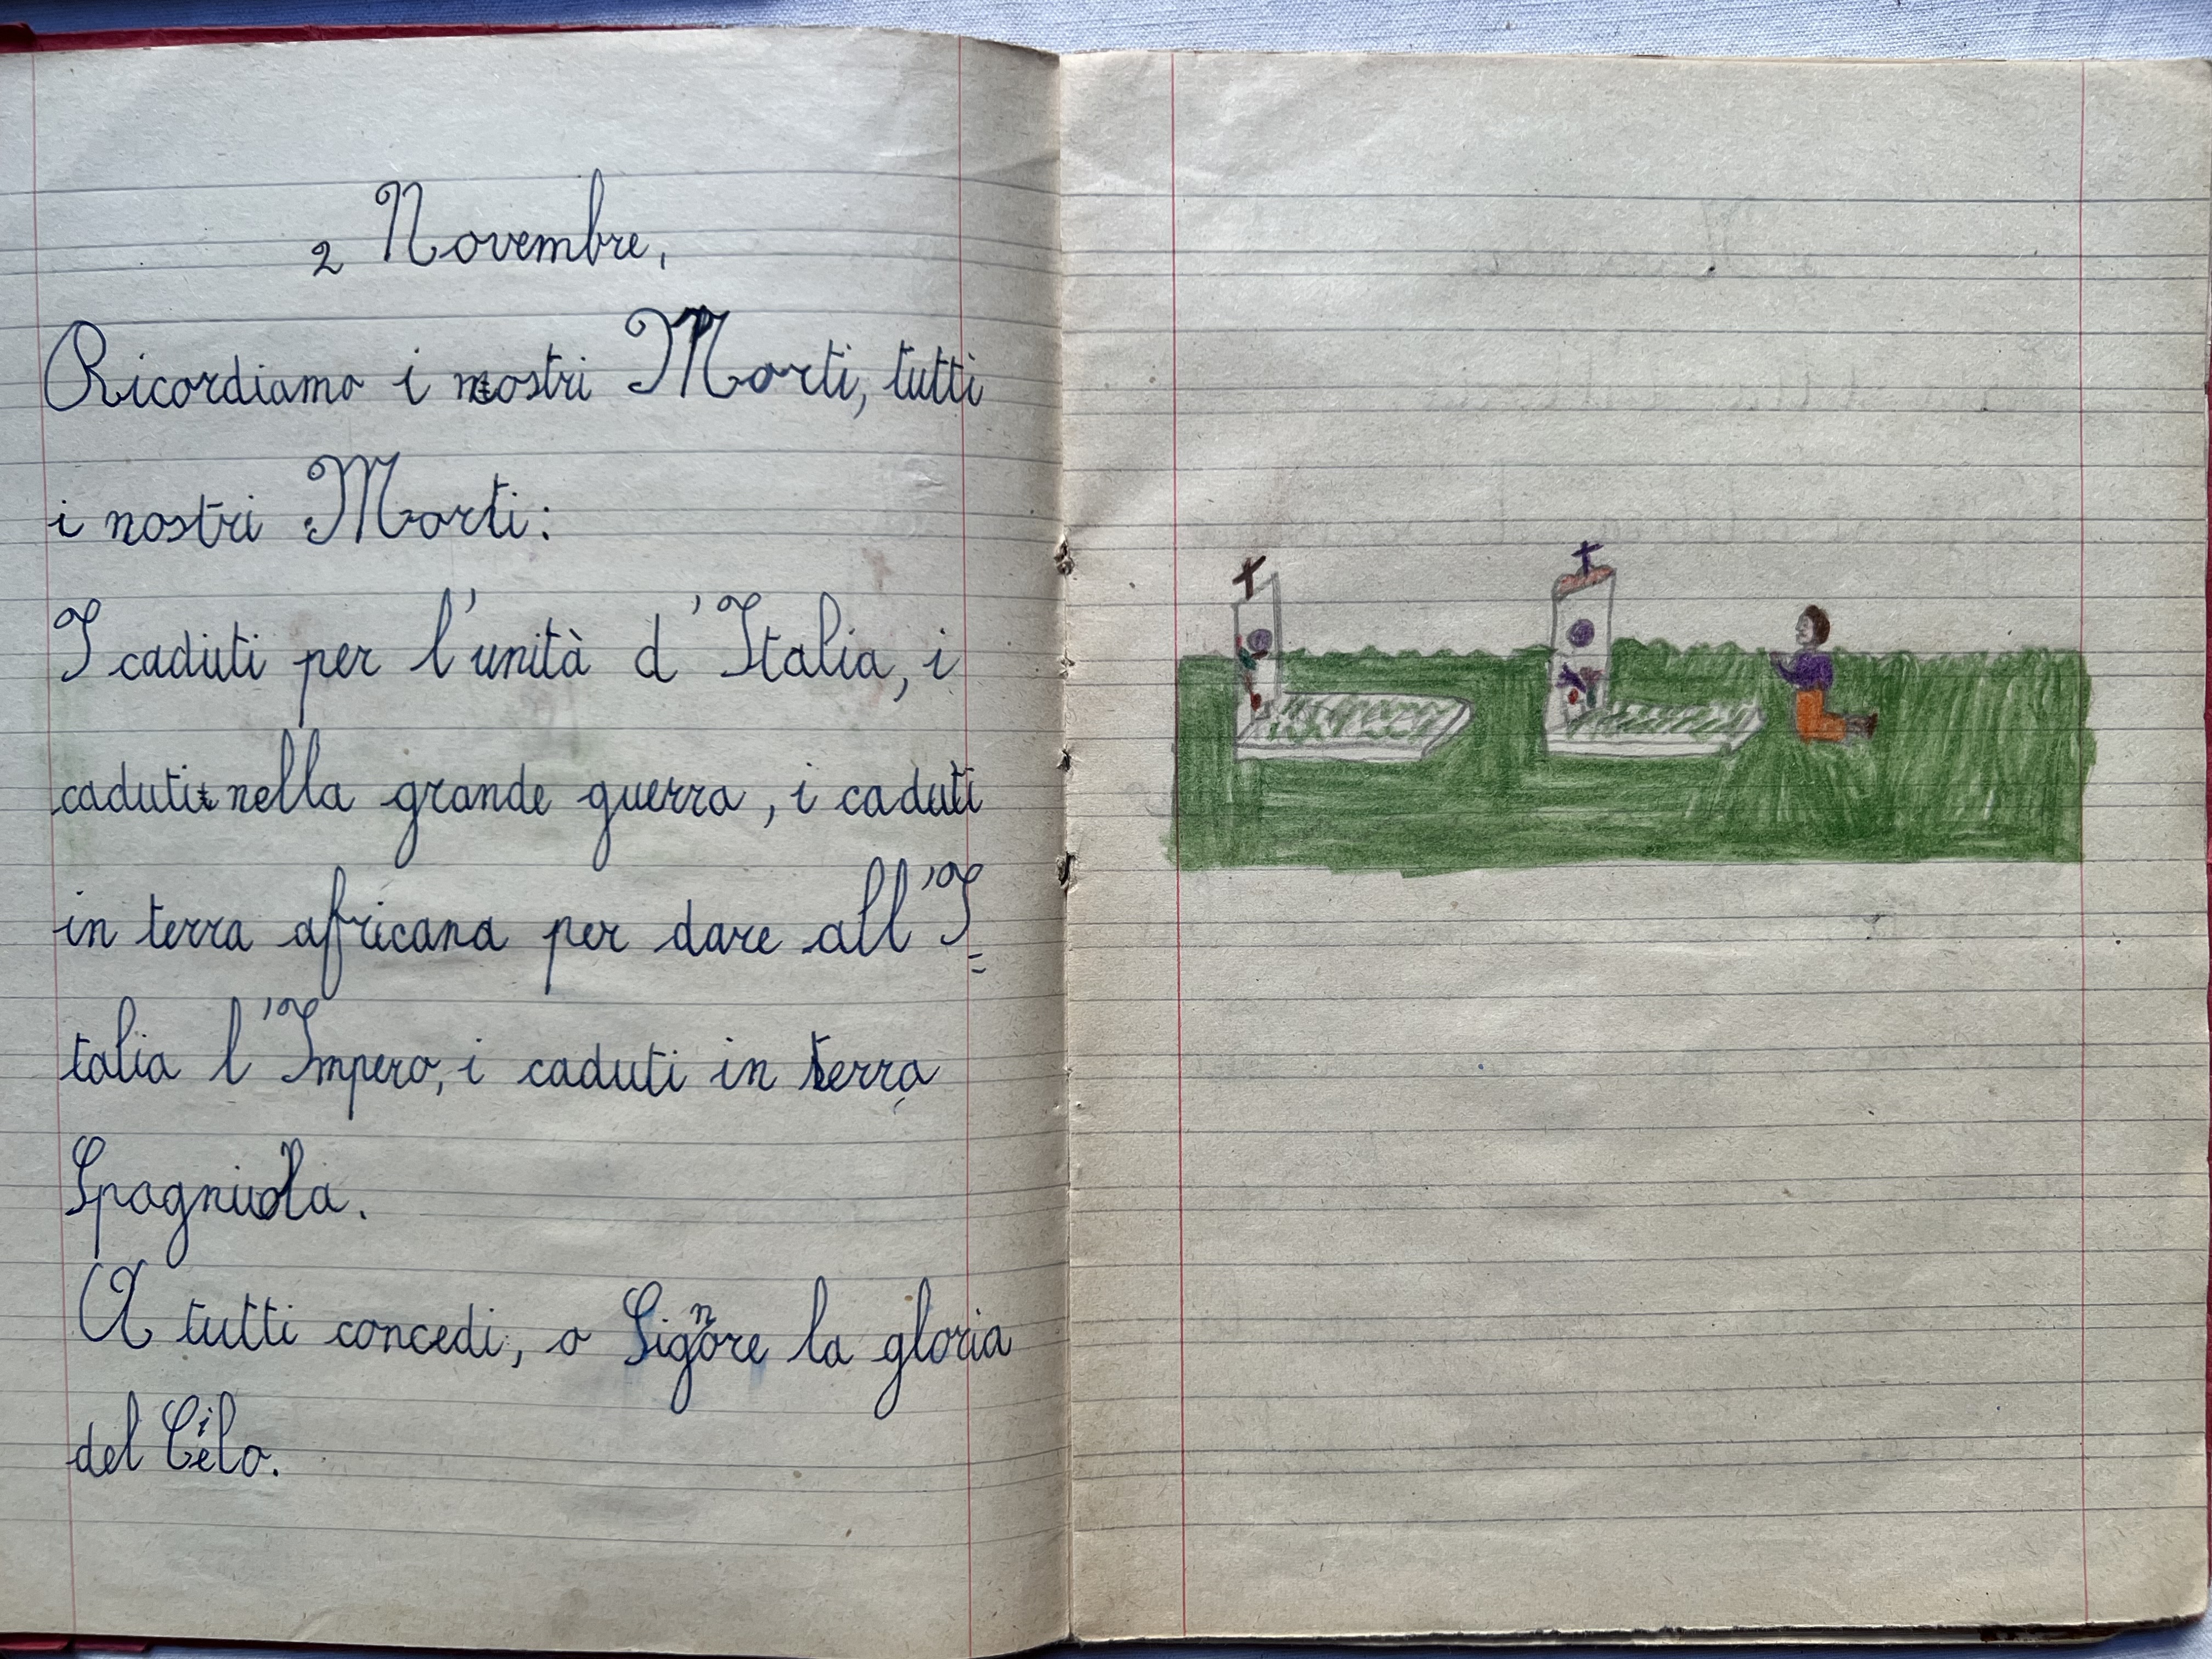 2 Novembre,
Ricordiamo i nostri Morti, tutti
i nostri Morti:
I caduti per l'unità d'Italia, i
caduti nella grande guerra, i caduti
in terra africana per dare all'I=
talia l'Impero, i caduti in terra
Spagnuola.
A tutti concedi, o Signore la gloria
del Cielo.